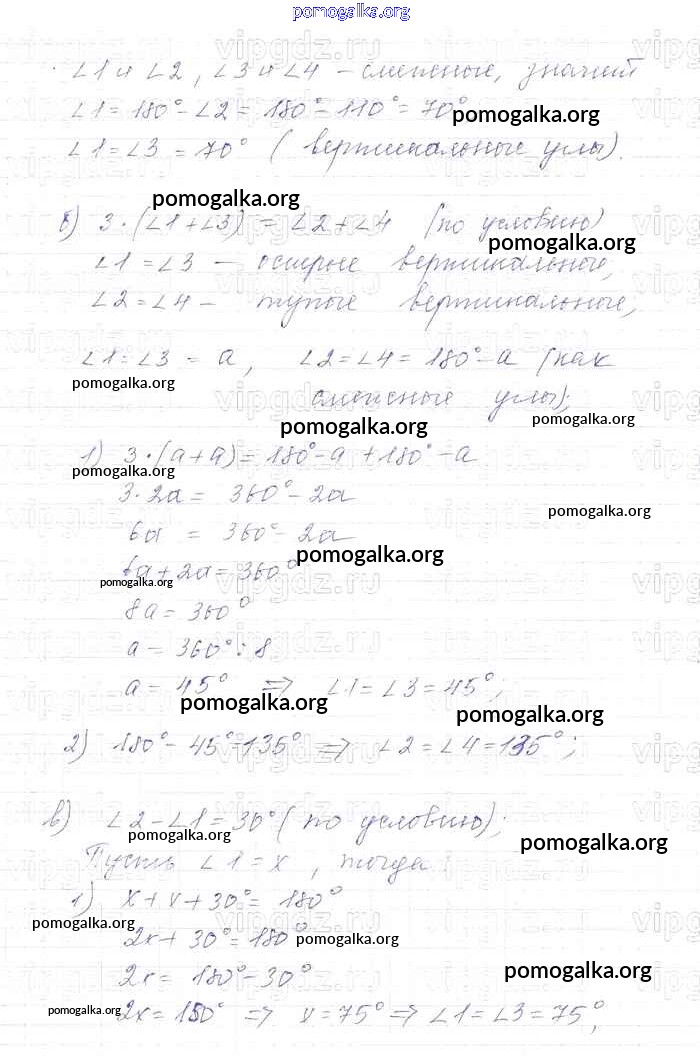 pomogalka.org
∠1 и ∠2, ∠3 и ∠4 – смежные, значит
∠1 = 180° - ∠2 = 180° - 110° = 70°
pomogalka.org
∠1 = ∠3 = 70° (вертикальные углы).
pomogalka.org
б) 3·(∠1+∠3) = ∠2+∠4 (по условию)
pomogalka.org
∠1 = ∠3 – острые вертикальные,
∠2 = ∠4 – тупые вертикальные,
∠1 = ∠3 = a, ∠2 = ∠4 = 180° - a (как
pomogalka.org
смежные углы);
pomogalka.org
pomogalka.org
1) 3·(a+a) = 180° - a + 180° - a
3·2a = 360° - 2a
pomogalka.org
6a = 360° - 2a
pomogalka.org
6a + 2a = 360°
pomogalka.org
8a = 360°
a = 360° : 8
a = 45° ⇒ ∠1 = ∠3 = 45°;
pomogalka.org
pomogalka.org
2) 180° - 45° = 135° ⇒ ∠2 = ∠4 = 135°;
в) ∠2 - ∠1 = 30° (по условию);
pomogalka.org
pomogalka.org
Пусть ∠1 = x, тогда
1) x + x + 30° = 180°
pomogalka.org
2x + 30° = 180°
pomogalka.org
2x = 180° - 30°
pomogalka.org
2x = 150° ⇒ x = 75° ⇒ ∠1 = ∠3 = 75°,
pomogalka.org
vipgdz.ru